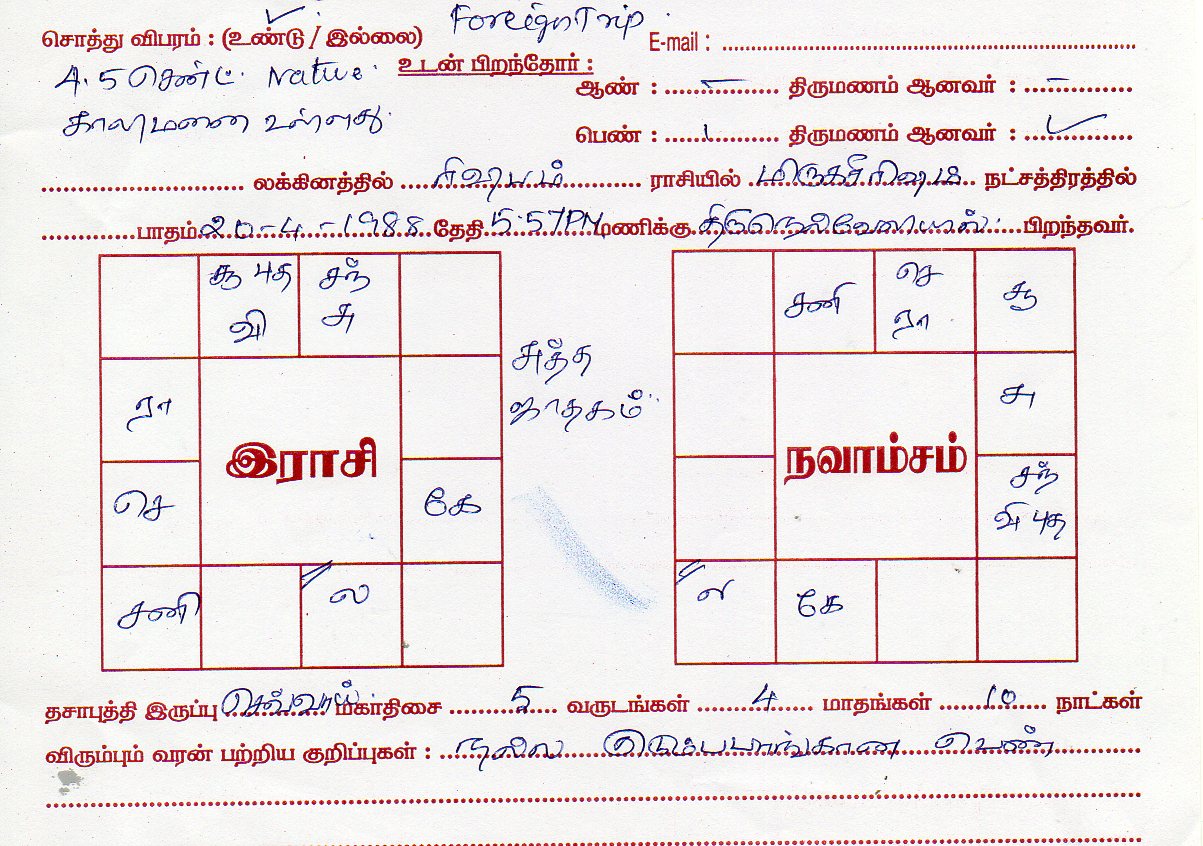 சொத்து விபரம் : (உண்டு / இல்லை) Foreign Trip E-mail :
4.5 சென்ட் Native உடன் பிறந்தோர் :
ஆண் : – திருமணம் ஆனவர் : –
காலிமனை உள்ளது.
பெண் : 1 திருமணம் ஆனவர் : ✓
லக்கினத்தில் ரிஷபம் ராசியில் மிருகசீரிஷம் நட்சத்திரத்தில்
பாதம் 20-4-1988 தேதி 5.57PM மணிக்கு திருநெல்வேலியில் பிறந்தவர்.
சூ புத வி
சந் சு
ரா
செ
கே
சனி
ல
இராசி
சுத்த
ஜாதகம்
சனி
செ ரா
சூ
சு
சந் வி புத
ல
கே
நவாம்சம்
தசாபுத்தி இருப்பு செவ்வாய் மகாதிசை 5 வருடங்கள் 4 மாதங்கள் 10 நாட்கள்
விரும்பும் வரன் பற்றிய குறிப்புகள் : நல்ல குடும்பபாங்கான பெண்